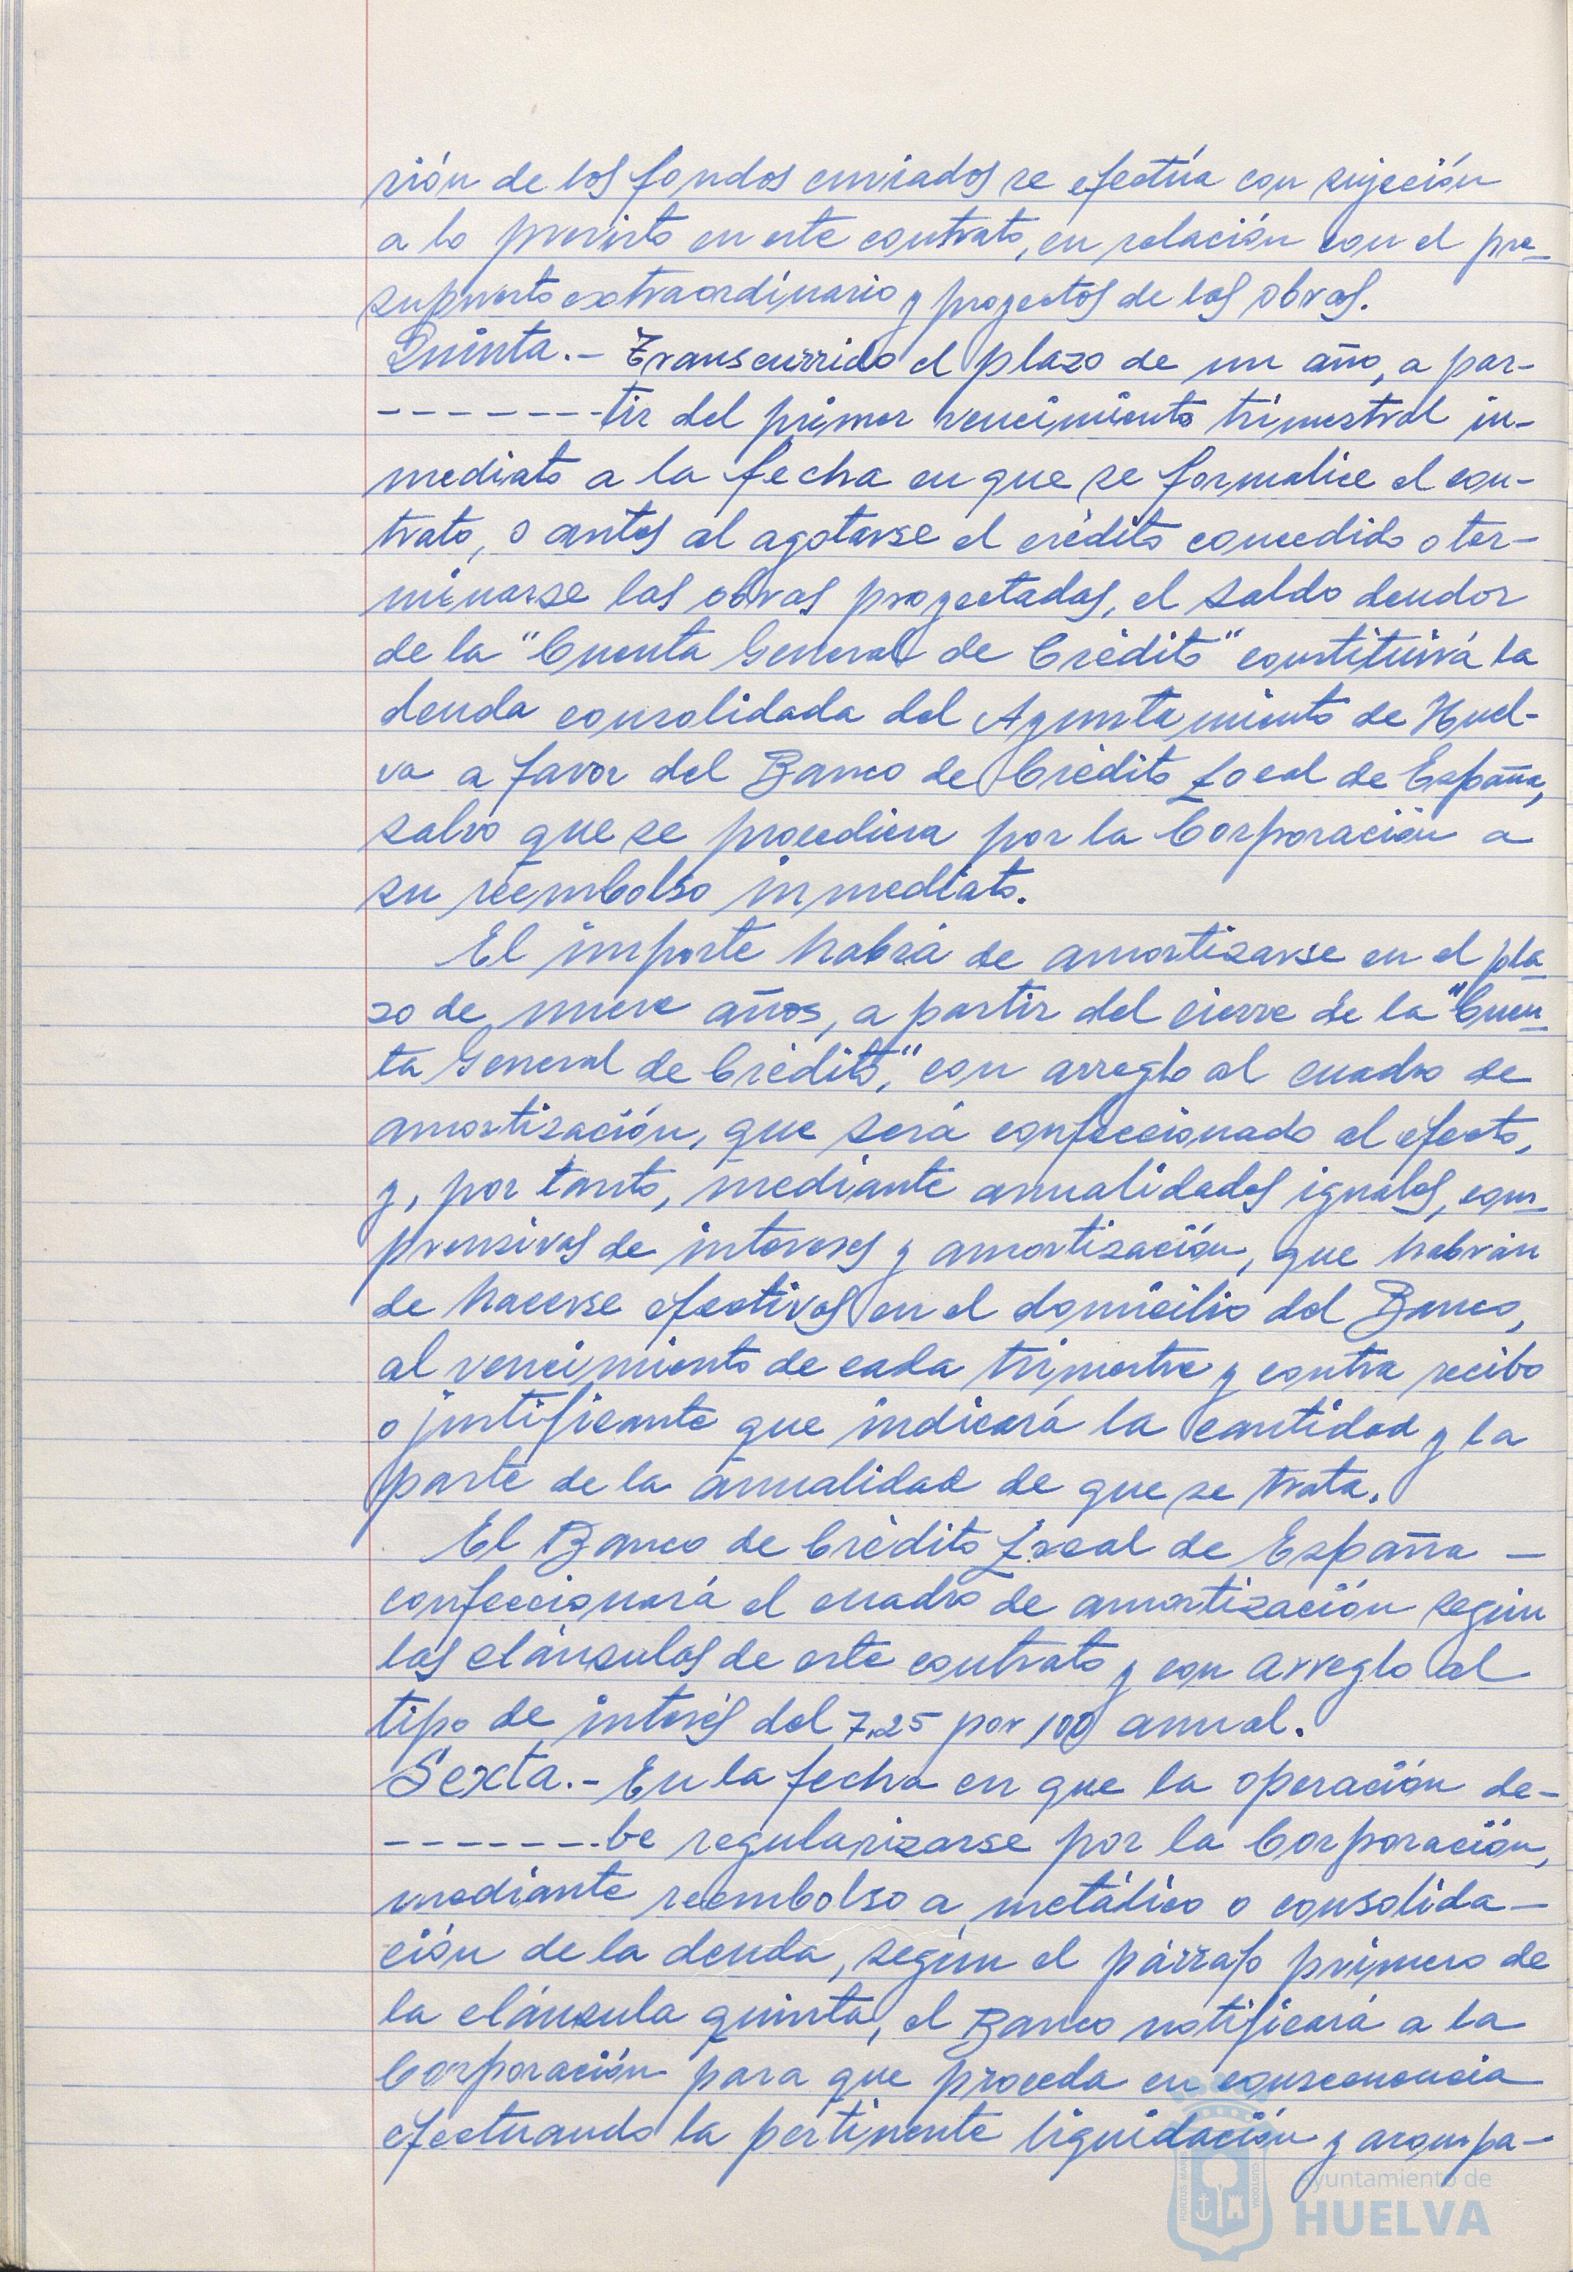 sión de los fondos enviados se efectúa con sujeción
a lo previsto en este contrato, en relación con el pre-
supuesto extraordinario y proyectos de las obras.
Quinta.- Transcurrido el plazo de un año, a par-
-------tir del primer vencimiento trimestral in-
mediato a la fecha en que se formalice el con-
trato, o antes al agotarse el crédito concedido o ter-
minarse las obras proyectadas, el saldo deudor
de la "Cuenta General de Crédito" constituirá la
deuda consolidada del Ayuntamiento de Huel-
va a favor del Banco de Crédito Local de España,
salvo que se procediera por la Corporación a
su reembolso inmediato.
El importe habrá de amortizarse en el pla-
zo de nueve años, a partir del cierre de la "Cuen-
ta General de Crédito", con arreglo al cuadro de
amortización, que será confeccionado al efecto,
y, por tanto, mediante anualidades iguales, com-
prensivas de intereses y amortización, que habrán
de hacerse efectivas en el domicilio del Banco,
al vencimiento de cada trimestre y contra recibo
o justificante que indicará la cantidad y la
parte de la anualidad de que se trata.
El Banco de Crédito Local de España -
confeccionará el cuadro de amortización según
las cláusulas de este contrato y con arreglo al
tipo de interés del 7,25 por 100 anual.
Sexta.- En la fecha en que la operación de-
-------be regularizarse por la Corporación,
mediante reembolso a metálico o consolida-
ción de la deuda, según el párrafo primero de
la cláusula quinta, el Banco notificará a la
Corporación para que proceda en consecuencia
efectuando la pertinente liquidación y acompa-
Ayuntamiento de
HUELVA